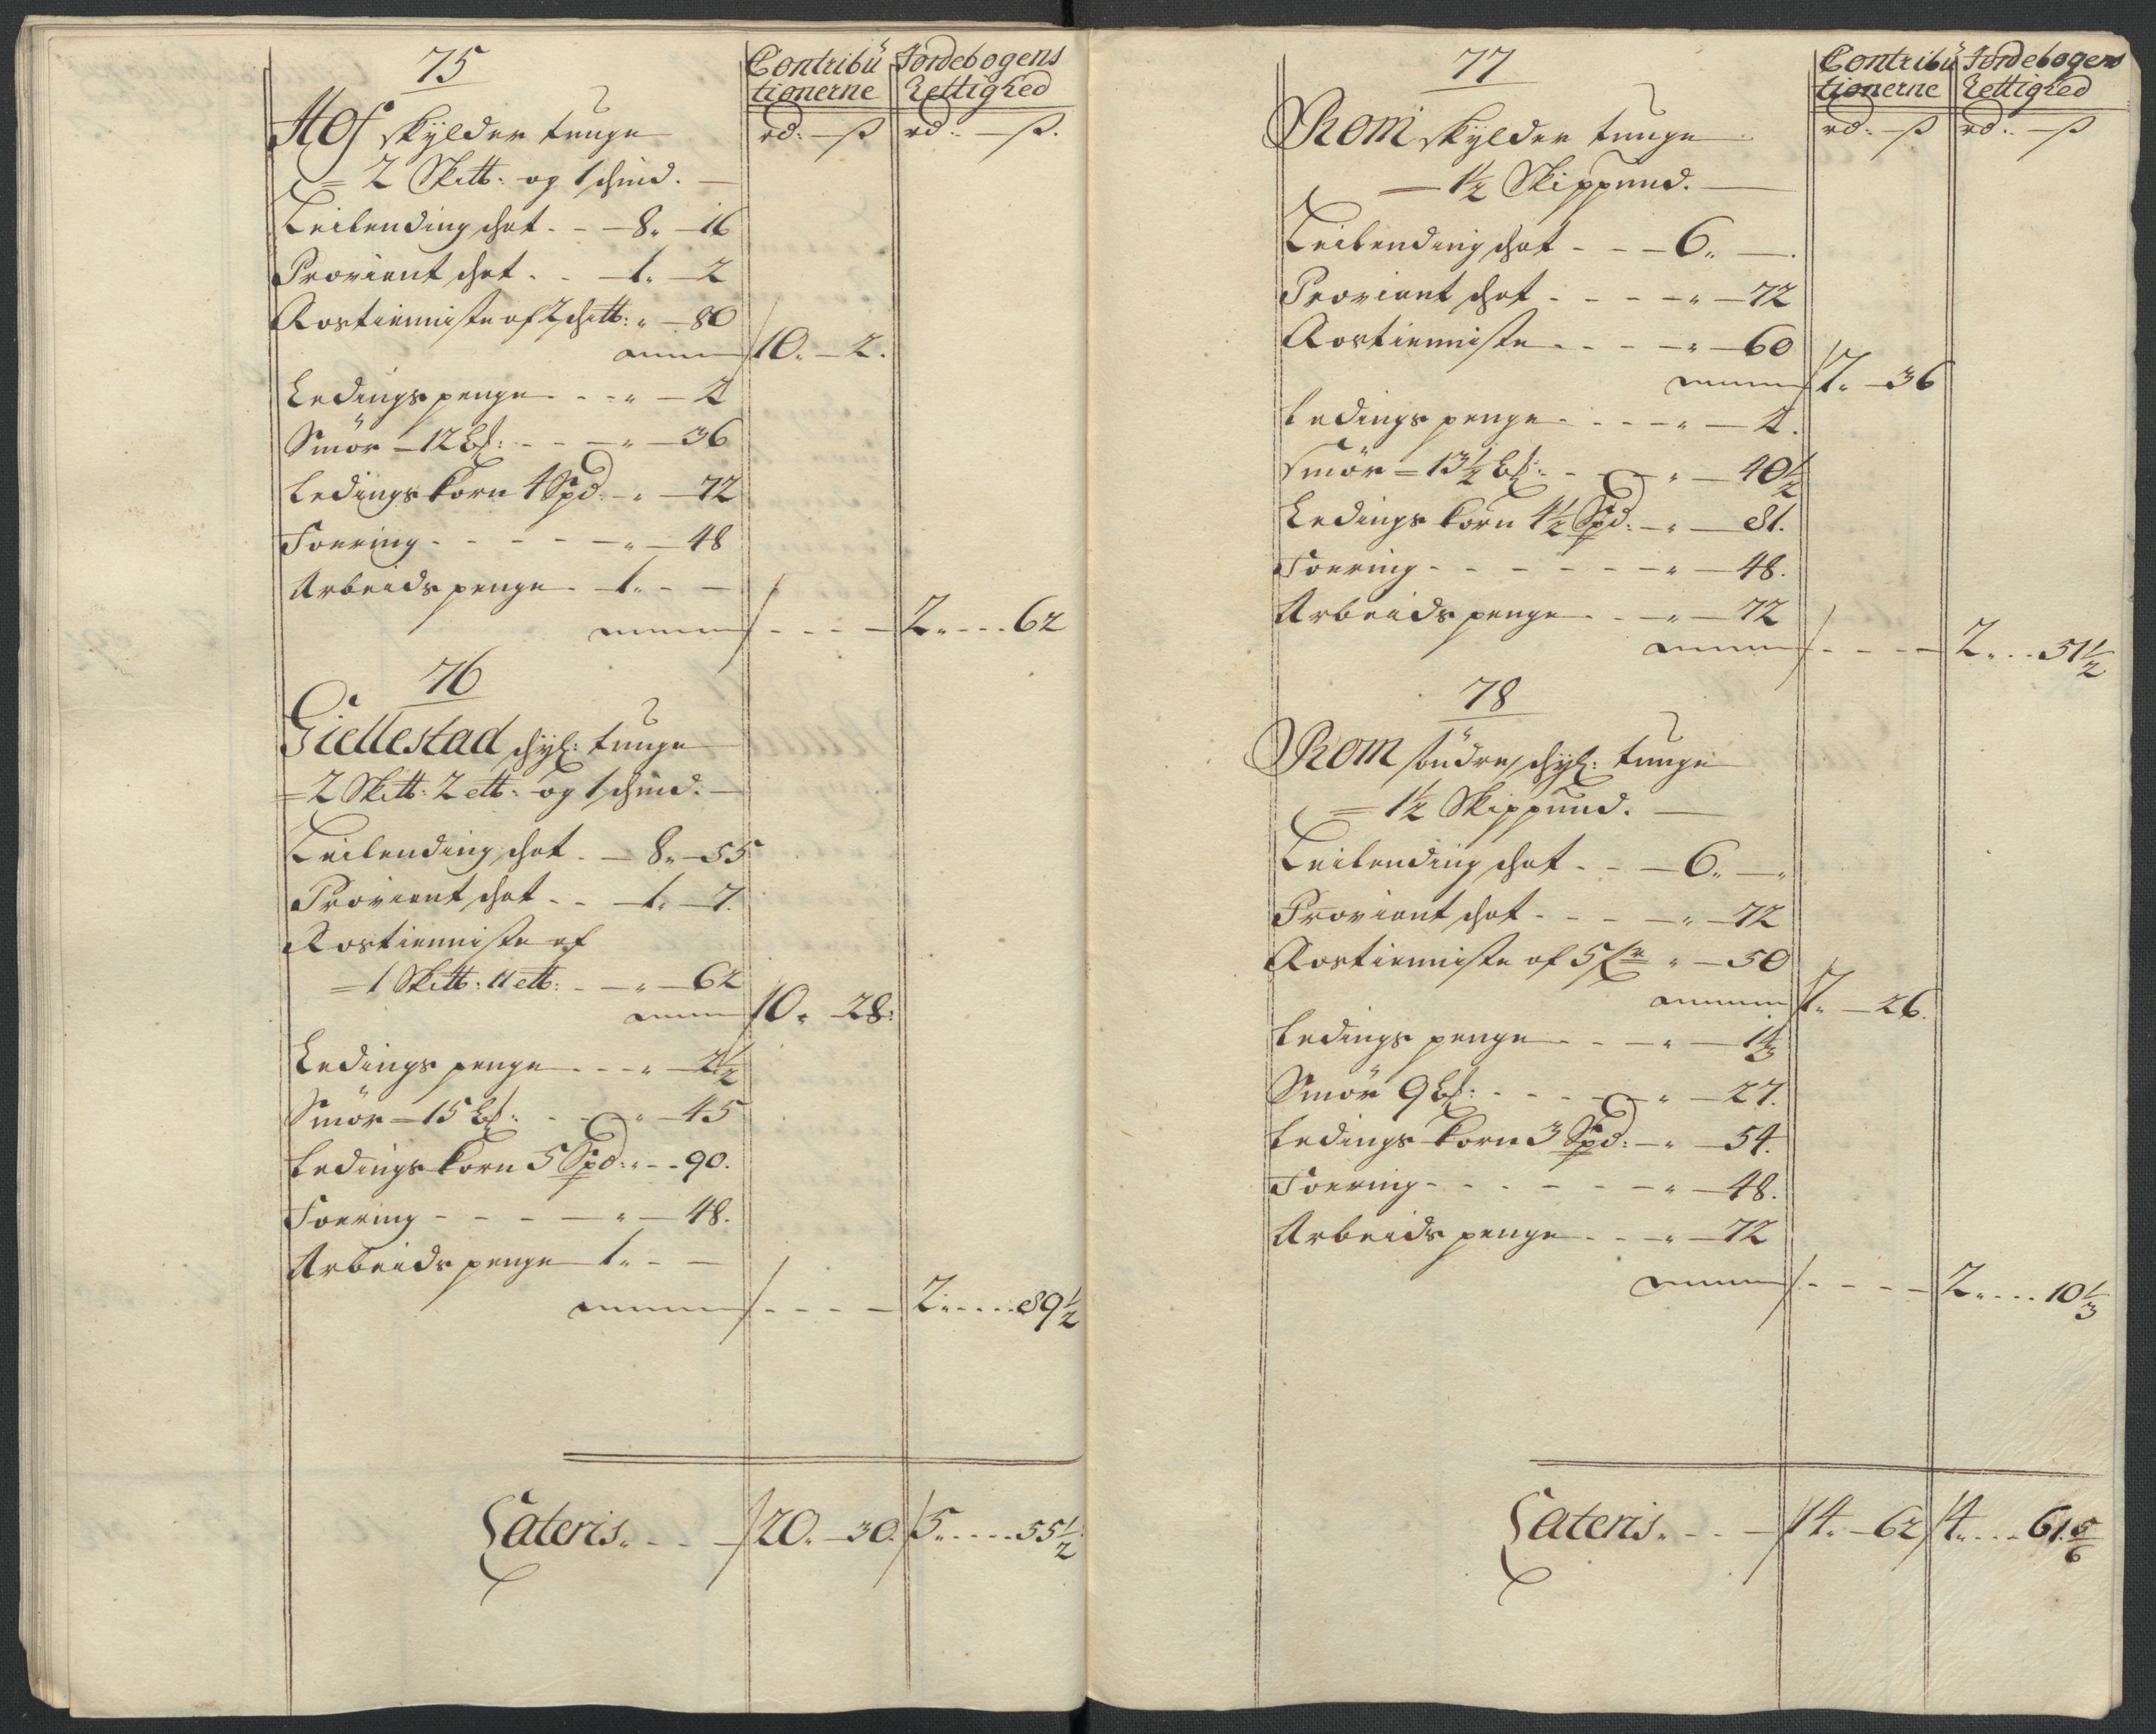 75
Contribu Jordebogens
tionerne Rettighed
rd: — ß rd: — ß.
Hof skylder tunge
= 2 Skitt: og 1 schind. —
Leilending schat. - — 8„ — 16
Proviant schat. . — 1„ — 2
Rostienniste af 2 schtt: „ — 80
10„ — 2.
Ledings penge - - - „ — 2
Smör — 12 L: - - — „ — 36
Ledings korn 4 Spd: — „ — 72
Foering - - - - — „ — 48
Arbeids penge . — 1„ - —
- - - — 2„ - - - 62
76
Giellestad schyl: tunge
= 2 Skitt: 2 ett: og 1 schind: —
Leilending schat . — 8„ — 55
Proviant schat . . — 1„ — 7.
Rostienniste af
= 1 Skitt: 11 ett: - — „ — 62
10„ 28:
Ledings penge - - - „ — 2½
Smör — 15 L: - - — „ — 45
Ledings korn 5 Spd: „ - - 90.
Foering - - - — „ — 48.
Arbeids penge — 1„ - —
- - - — 2„ - - - 89½
Lateris. - - — 20„ — 30. 5„ - - - 55½
77
Contribu Jordebogens
tionerne Rettighed
rd: — ß rd: — ß
Rom skylder tunge
— 1½ Skippund. —
Leilending schat - - — 6„ — .
Proviant schat - - - — „ — 72
Rostienniste - - - — „ — 60
7„ — 36
Ledings penge - - - — „ — 2.
Smör = 13½ L: - - — „ — 40½
Ledings korn 4½ Spd: — „ — 81.
Foering - - - - - — „ — 48.
Arbeids penge - - — „ — 72
- - - — 2„ - - 51½
78
Rom söndre, schyl: tunge
= 1½ Skippund. —
Leilending schat - - — 6„ — „
Proviant schat - - - — „ — 72
Rostienniste af 5 „ — 50
7„ — 26.
Ledings penge - - — „ — 1⅓
Smör 9 L: - - - — „ — 27.
Ledings korn 3 Spd: — „ — 54.
Foering - - - - - — „ — 48.
Arbeids penge - - — „ — 72
- - - — 2„ - - - 10⅓
Lateris. - - — 14„ — 62 4„ - - - 61.⅚